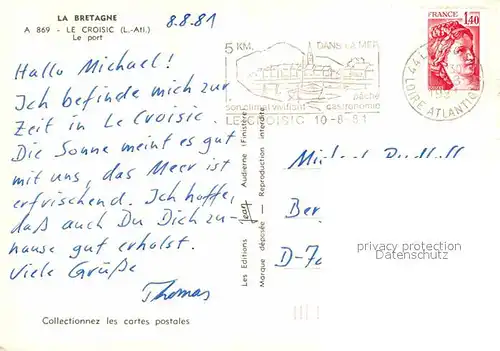 LA BRETAGNE
A 869 - LE CROISIC (L.-Atl.)
Le port
8.8.81
Hallo Michael!
Ich befinde mich zur
Zeit in Le Croisic.
Die Sonne meint es gut
mit uns, das Meer ist
erfrischend. Ich hoffe,
daß auch Du Dich zu-
hause gut erholst.
Viele Grüße
Thomas
Collectionnez les cartes postales
Les Editions Jean Audierne (Finistère)
Marque déposée - Reproduction interdite
5 KM. DANS LA MER
pêche
son climat vivifiant gastronomie
LE CROISIC 10-8-81
FRANCE
1,40
44
LOIRE ATLANTIQUE
Michael
Ber
D-7
privacy protection
watermark